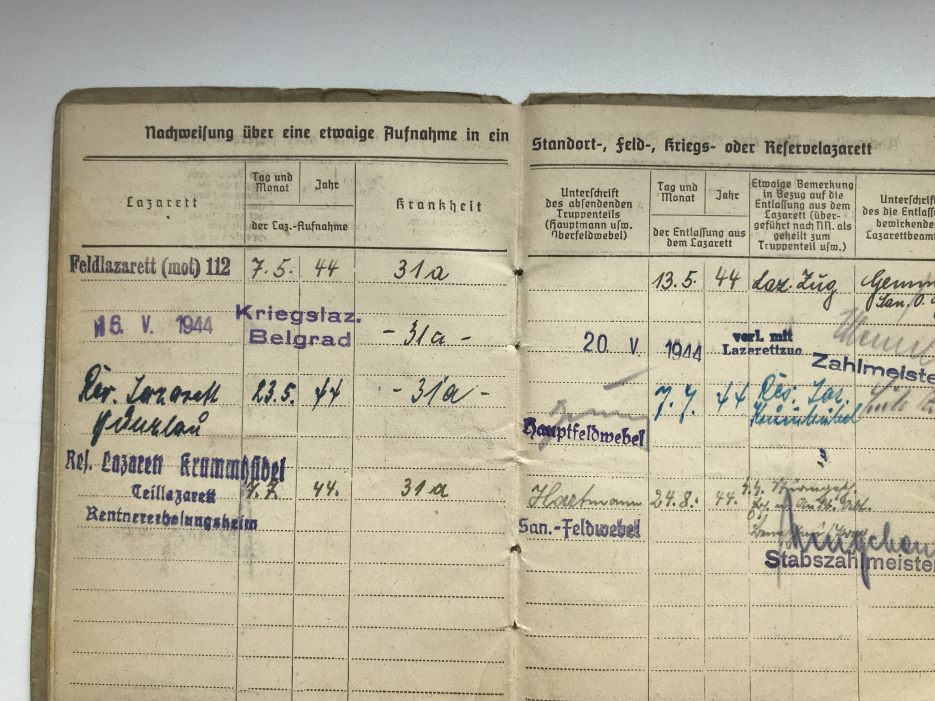 Nachweisung über eine etwaige Aufnahme in ein
Standort-, Feld-, Kriegs- oder Reservelazarett
Lazarett
Tag und Monat
Jahr
der Laz.-Aufnahme
Krankheit
Unterschrift
des absendenden
Truppenteils
(Hauptmann usw.
Oberfeldwebel)
Tag und Monat
Jahr
der Entlassung aus
dem Lazarett
Etwaige Bemerkung
in Bezug auf die
Entlassung aus dem
Lazarett (über-
geführt nach NN. als
geheilt zum
Truppenteil usw.)
Unterschrift
des die
bewirkenden
Feldlazarett (mot) 112 7.5. 44 31a 13.5. 44 Laz. Zug
16. V. 1944 Kriegslaz.
Belgrad - 31a - 20 V. 1944 verl. mit
Lazarettzug
Zahlmeister
Res. Lazarett 23.5. 44 - 31a - 7.7. 44 Res. Laz.
Hauptfeldwebel
Res. Lazarett Krummhübel
Teillazarett 7.7. 44. 31a Hartmann 24.8. 44.
Rentnererholungsheim
San.-Feldwebel
Stabszahlmeister